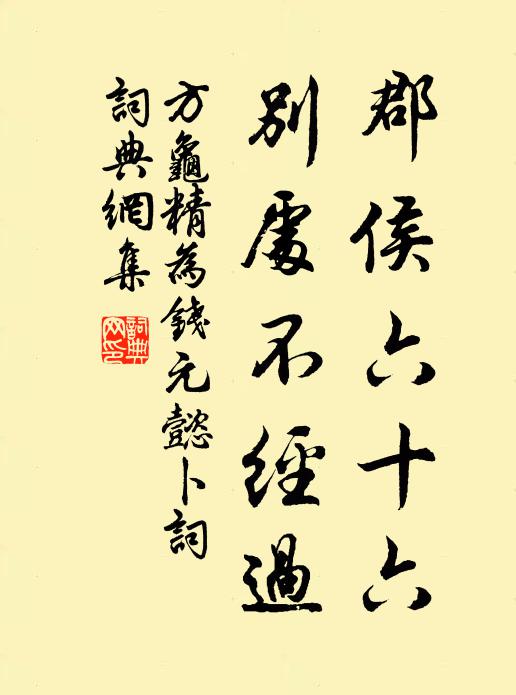 郡侯六十六
別處不經過
方龜精為錢元懿卜詞
詞典網集
詞典網印